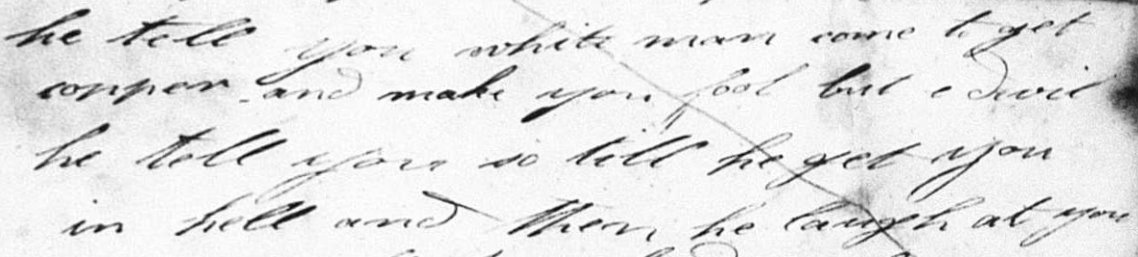 he tell you white man come to get
copper and make you fool but e devil
he tell you so till he get you
in hell and then he laugh at you